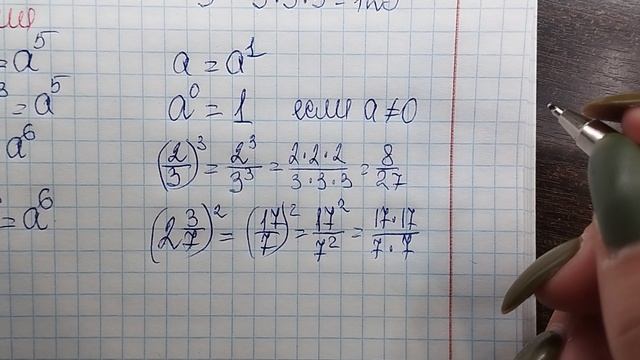 = a⁵
a = a¹
= a⁵
a⁰ = 1 если a ≠ 0
a⁶
(2/3)³ = 2³/3³ = 2·2·2/3·3·3 = 8/27
= a⁶
(2 3/7)² = (17/7)² = 17²/7² = 17·17/7·7